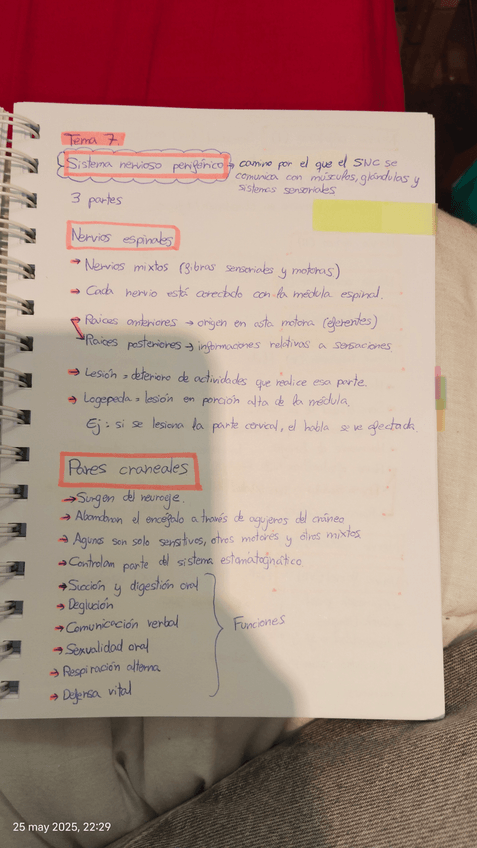 Tema 7.
Sistema nervioso periférico → camino por el que el SNC se
comunica con músculos, glándulas y
sistemas sensoriales
3 partes
Nervios espinales
→ Nervios mixtos (fibras sensoriales y motoras)
→ Cada nervio está conectado con la médula espinal.
Raices anteriores → origen en asta motora (eferentes)
Raices posteriores → informaciones relativas a sensaciones
→ Lesión = deterioro de actividades que realice esa parte.
→ Logopeda = lesión en porción alta de la médula
Ej: si se lesiona la parte cervical, el habla se ve afectada
Pares craneales
→ Surgen del neuroeje.
→ Abandonan el encéfalo a través de agujeros del cráneo
→ Algunos son solo sensitivos, otros motores y otros mixtos
→ Controlan parte del sistema estomatognático
→ Succión y digestión oral
→ Deglución
→ Comunicación verbal
Funciones
→ Sexualidad oral
→ Respiración alterna
→ Defensa vital
25 may 2025, 22:29